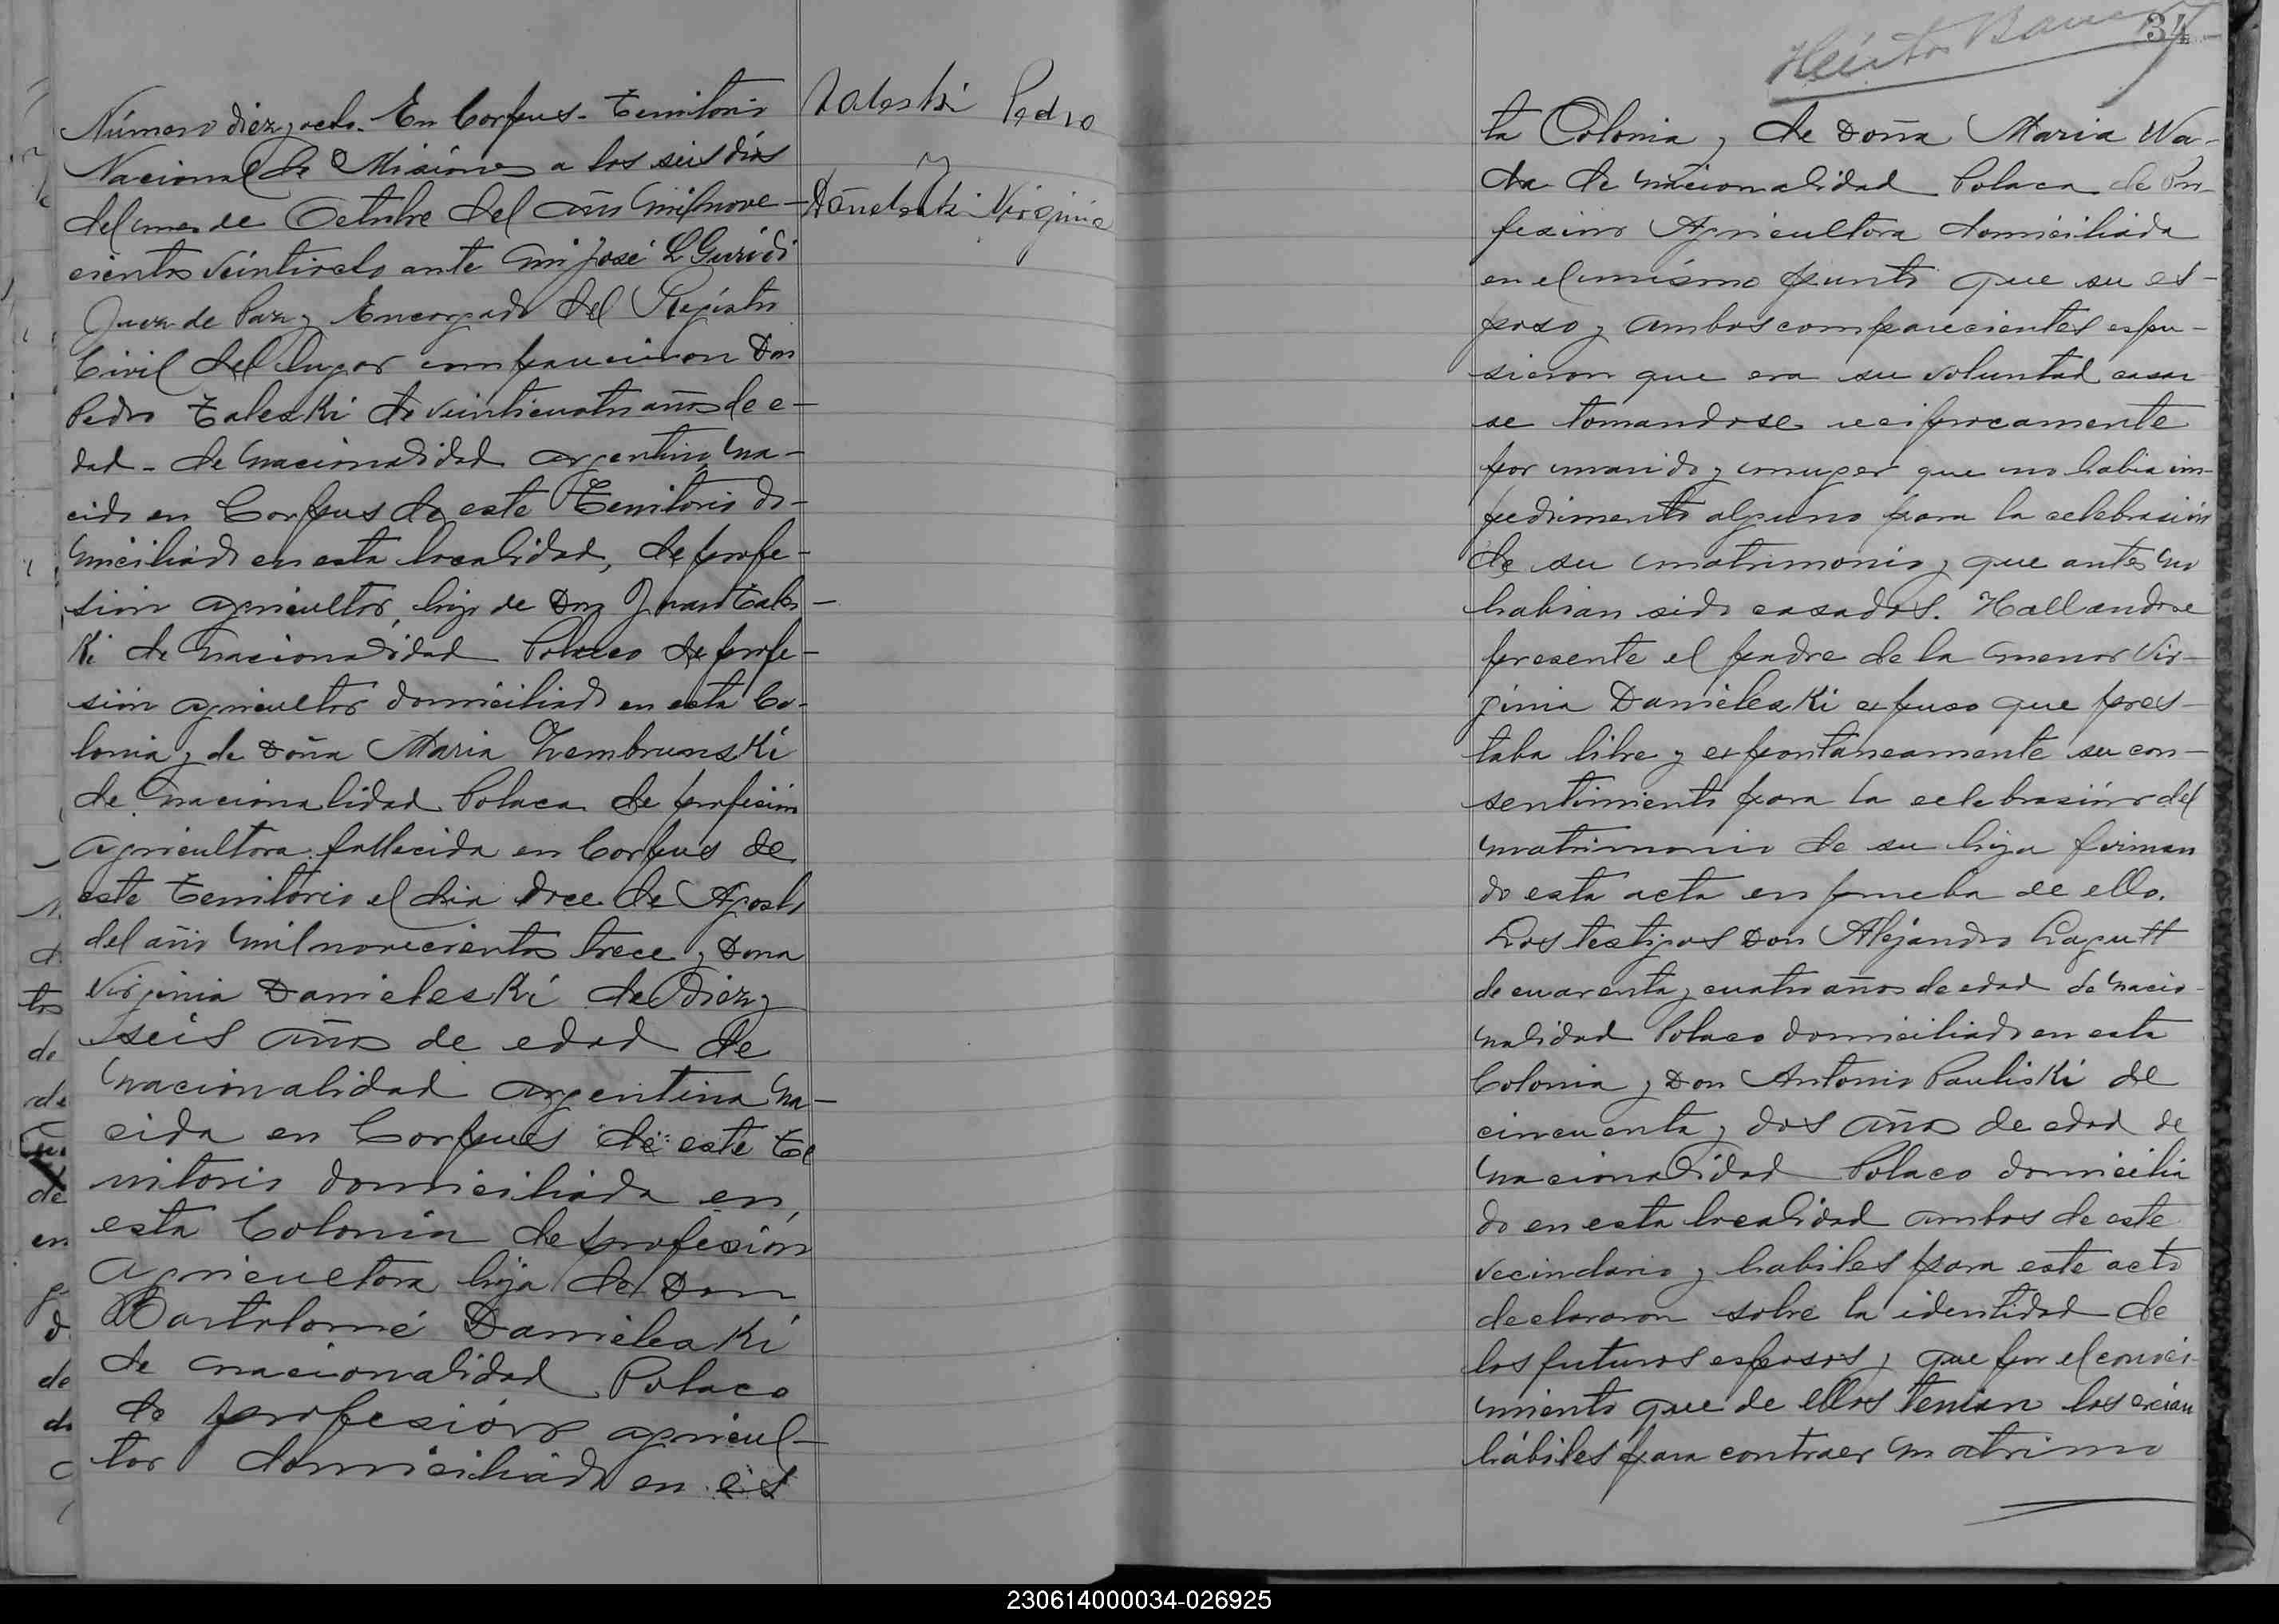 Número diez y ocho. En Corpus - Territorio
Nacional de Misiónes a los seis dias
del mes de Octubre del año mil nove-
cientos veintiocho ante mi José L Guridi
Juez de Paz y Encargado del Registro
Civil del lugar comparecieron Don
Pedro Zaleski de veinticuatro años de e-
dad - de nacionalidad argentino na-
cido en Corpus de este Territorio do-
miciliado en esta localidad, de profe-
sión agricultor, hijo de Don Juan Zales-
Ki de nacionalidad Polaco de profe-
sión agricultor domiciliado en esta Co-
lonia y de Doña Maria Zembrunski
de nacionalidad Polaca de profesión
agricultora fallecida en Corpus de
este Territorio el dia doce de Agosto
del año mil novecientos trece y Dona
Virginia Danieleski de diez y
seis años de edad de
nacionalidad argentina na-
cida en Corpus de este Te
rritorio domiciliada en
esta Colonia de profesión
agricultora hija de Don
Bartolomé Danieleski
de nacionalidad Polaco
de profesión agricul-
tor domiciliado en es
Zaleski Pedro
y
Danieleski Virginia
34
Héctor
ta Colonia y de Doña Maria Wa-
da de nacionalidad Polaca de Pro-
fesión Agricultora domiciliada
en el mismo punto que su es-
poso y ambos comparecientes espu-
sieron que era su voluntad casar
se tomandose reciprocamente
por marido y muger que no habia im-
pedimento alguno para la celebrasión
de su matrimonio y que antes no
habian sido casados. Hallandose
presente el padre de la menor Vir-
ginia Danieleski expuso que pres-
taba libre y expontáneamente su con-
sentimiento para la celebrasión del
matrimonio de su hija firman
do esta acta en prueba de ello.
Los testigos Don Alejandro Laputt
de cuarenta y cuatro años de edad de nacio-
nalidad Polaco domiciliado en esta
Colonia y Don Antonio Pauliski de
cincuenta y dos años de edad de
nacionalidad Polaco domicilia
do en esta localidad ambos de este
vecindario y habiles para este acto
declararon sobre la identidad de
los futuros esposos y que por el conoci-
miento que de ellos tenian los creian
hábiles para contraer matrimo
230614000034-026925